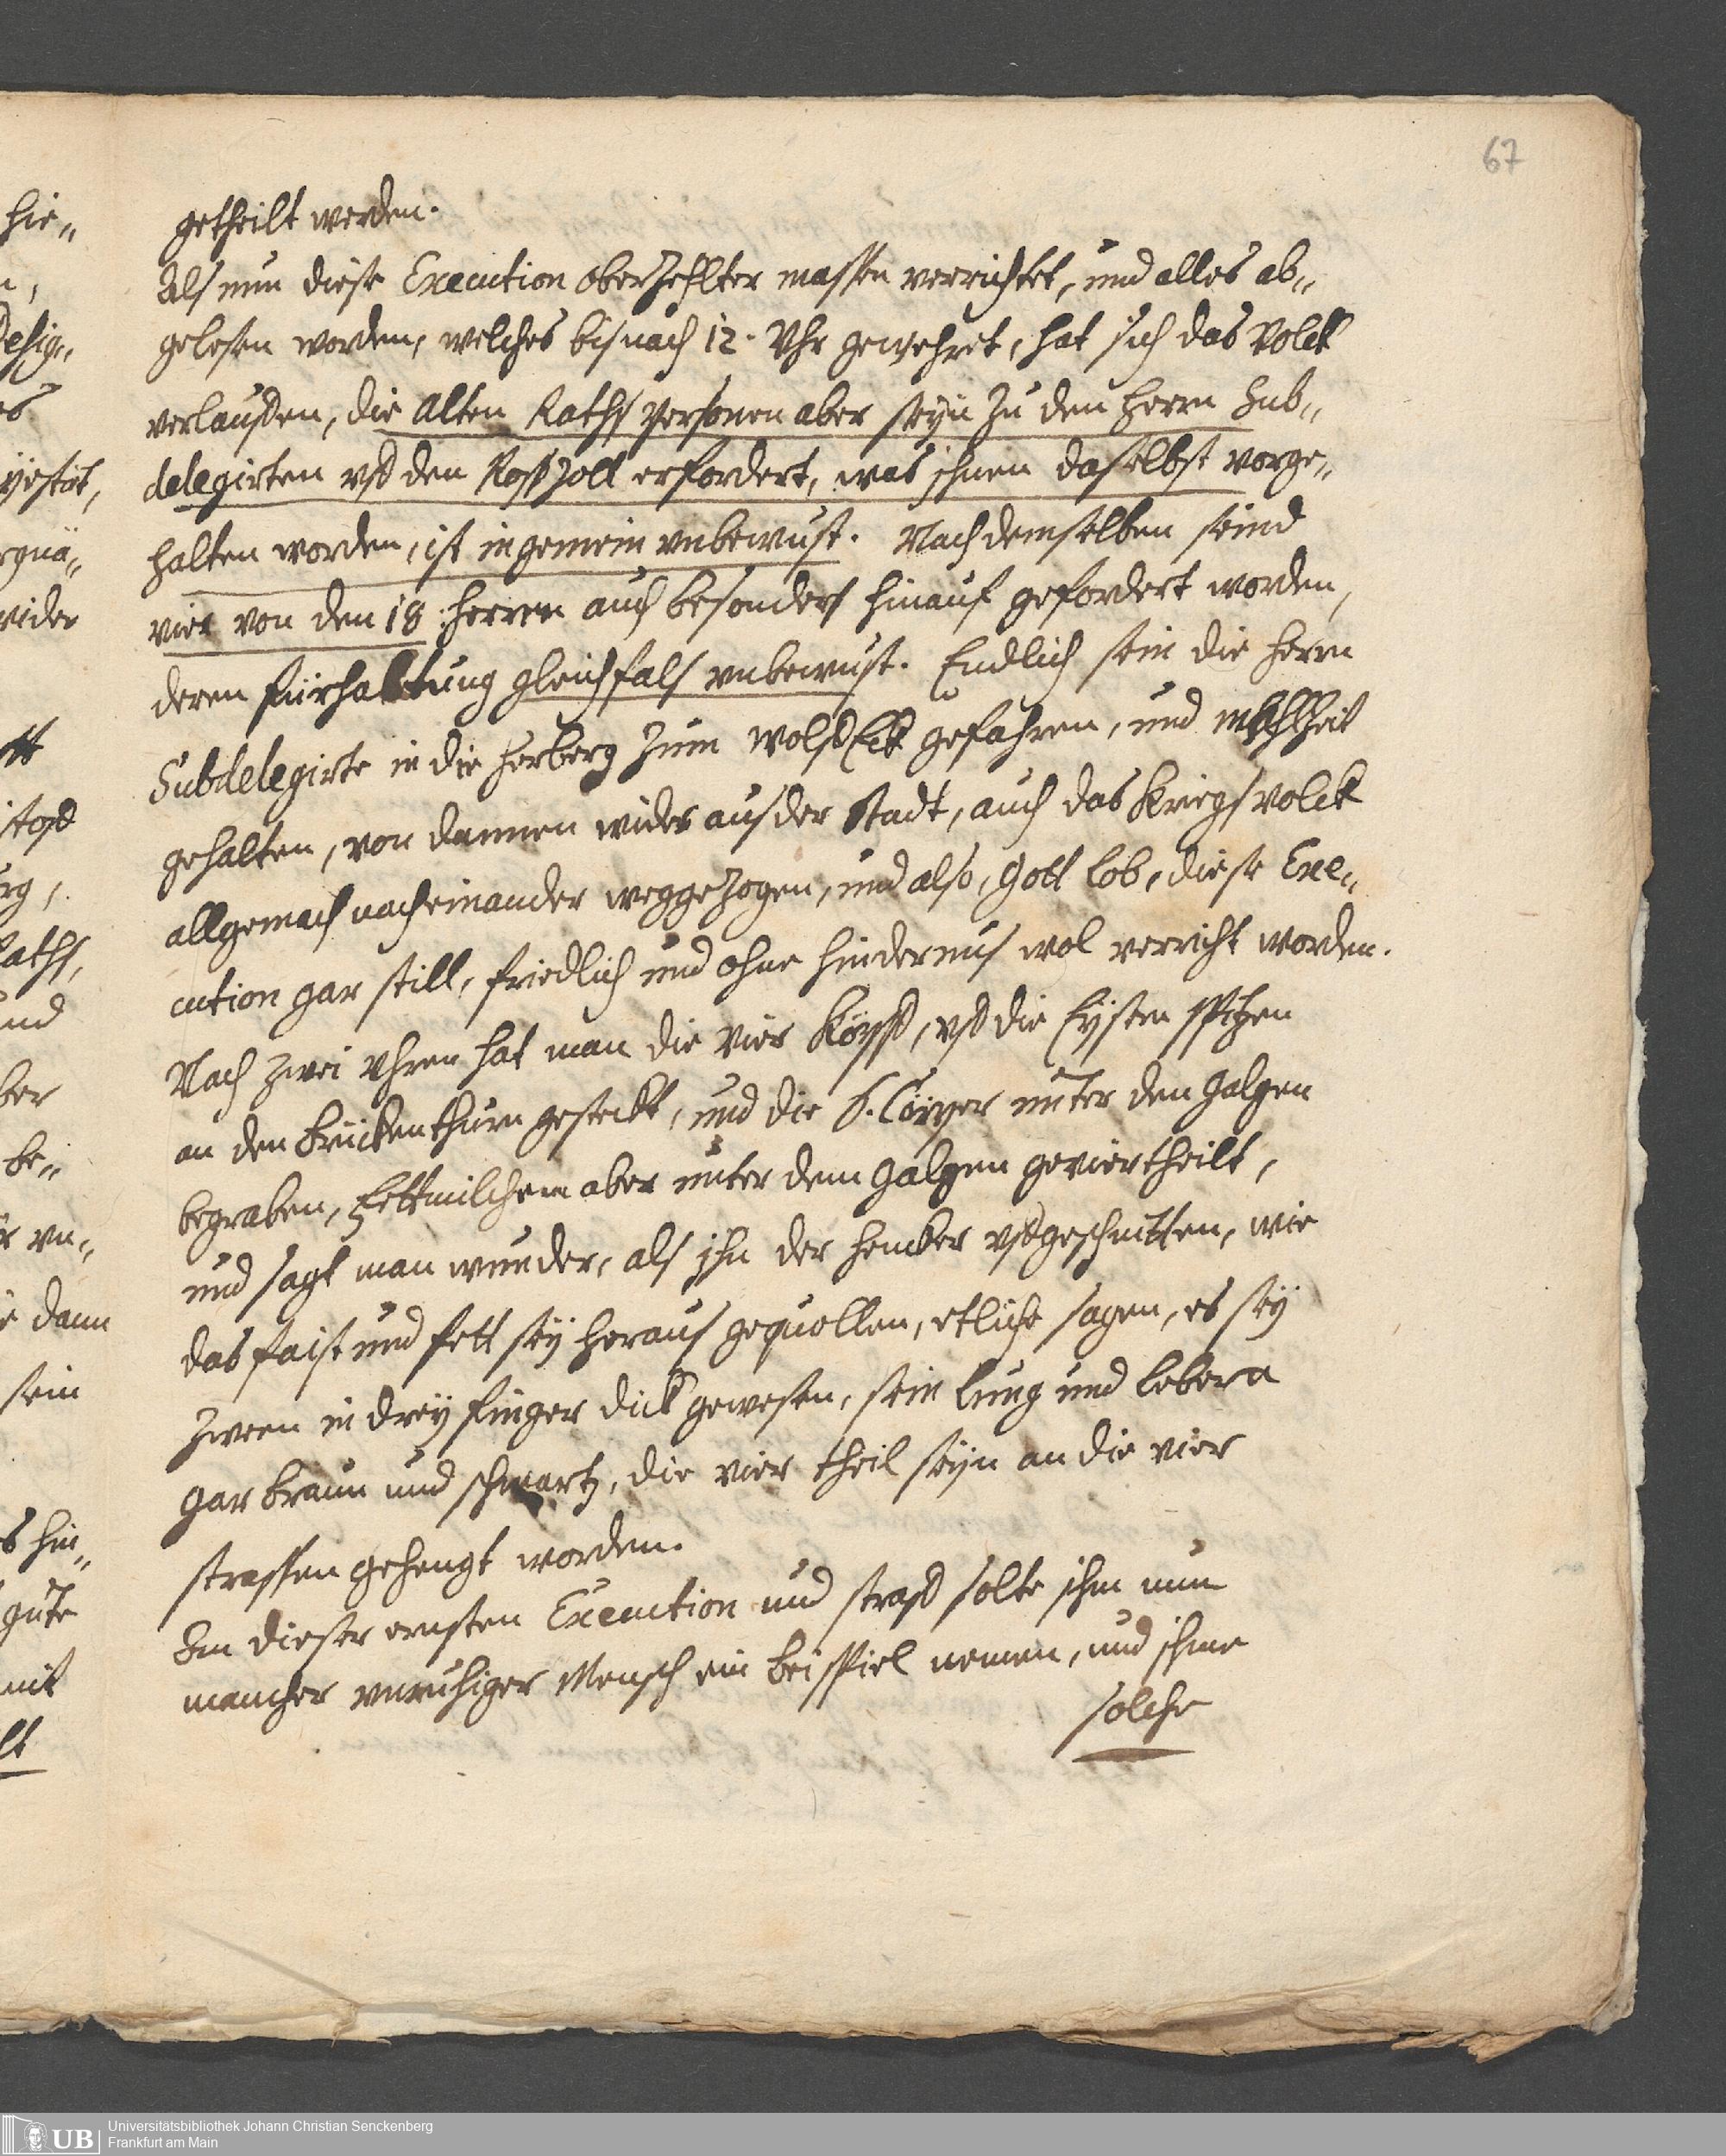 67
hie„
n,
Desig„
es
yestät,
rgnä„
wider
tt
itopf
urg,
Raths,
und
ber
be„
ür vn„
ie dann
sein
es hin„
gute
mit
lt
getheilt werden.
Als nun diese Execution oberzehlter massen verrichtet, und alles ab„
gelesen worden, welches bis nach 12. Vhr gewehret, hat sich das Volck
verlauffen, die Alten Raths Personen aber seyn zu den Herrn Sub„
delegirten vff den Roßzoll erfordert, was ihnen daselbst vorge„
halten worden, ist in gemein vnbewust. Nach demselben seind
vier von den 18. Herren auch besonders hinauf gefordert worden,
deren fürhaltung gleichfals vnbewust. Endlich sein die Herrn
Subdelegirte in die Herberg zum Wolffeck gefahren, und mahlzeit
gehalten, von dannen wider aus der Stadt, auch das Kriegsvolck
allgemach nacheinander weggezogen, und also, Gott lob, diese Exe„
cution gar still, friedlich und ohne hindernus wol verricht worden.
Nach zwei Vhren hat man die vier Köpff, vff die Eysern spitzen
an den Brückenthurn gesteckt, und die 6. Cörper unter den Galgen
begraben, Fettmilchem aber unter dem Galgen geviertheilt,
und sagt man wunder, als ihn der Hencker vffgeschnitten, wie
das faist und fett sey heraus gequollen, etliche sagen, es sey
zween in drey finger dick gewesen, sein lung und lebern
gar braun und schwartz, die vier theil seyn an die vier
strassen gehengt worden.
An dieser ernsten Execution und straff solte ihm nun
mancher vnruhiger Mensch ein beispiel nemen, und ihme
solche
UB
Universitätsbibliothek Johann Christian Senckenberg
Frankfurt am Main